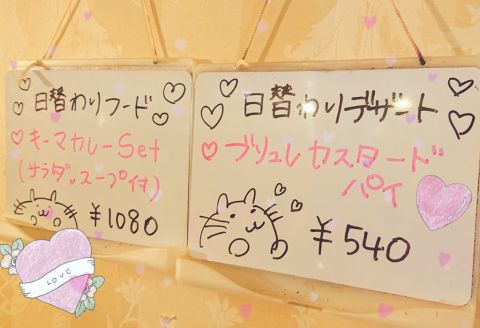 日替わりフード
キーマカレーSet
(サラダ、スープ付)
¥1080
日替わりデザート
ブリュレカスタード
パイ
¥540
LOVE